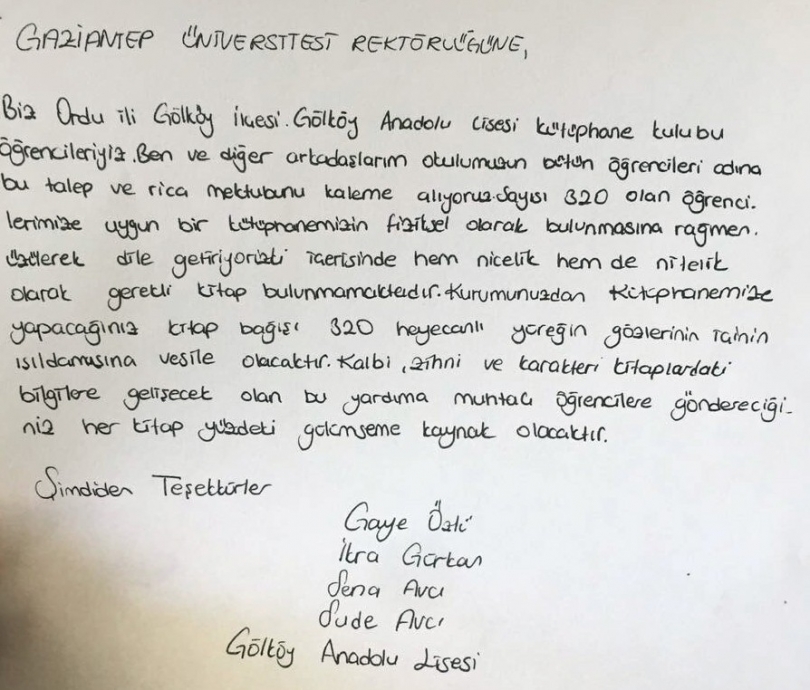 GAZİANTEP ÜNİVERSİTESİ REKTÖRLÜĞÜNE,
Biz Ordu ili Gölköy ilçesi. Gölköy Anadolu Lisesi kütüphane kulubu
öğrencileriyiz. Ben ve diğer arkadaşlarım okulumuzun bütün öğrencileri adına
bu talep ve rica mektubunu kaleme alıyoruz. Sayısı 320 olan öğrenci.
lerimize uygun bir kütüphanemizin fiziksel olarak bulunmasına rağmen.
üzülerek dile getiriyoruzki içerisinde hem nicelik hem de nitelik
olarak gerekli kitap bulunmamaktadır. Kurumunuzdan Kütüphanemize
yapacağınız kitap bağışı 320 heyecanlı yüreğin gözlerinin içinin
ışıldamasına vesile olacaktır. Kalbi, zihni ve karakteri kitaplardaki
bilgilere gelişecek olan bu yardıma muhtaç öğrencilere göndereceği-
niz her kitap yüzdeki gülümseme kaynak olacaktır.
Şimdiden Teşekkürler
Gaye Özlü
İkra Gürkan
Sena Avcı
Sude Avcı
Gölköy Anadolu Lisesi